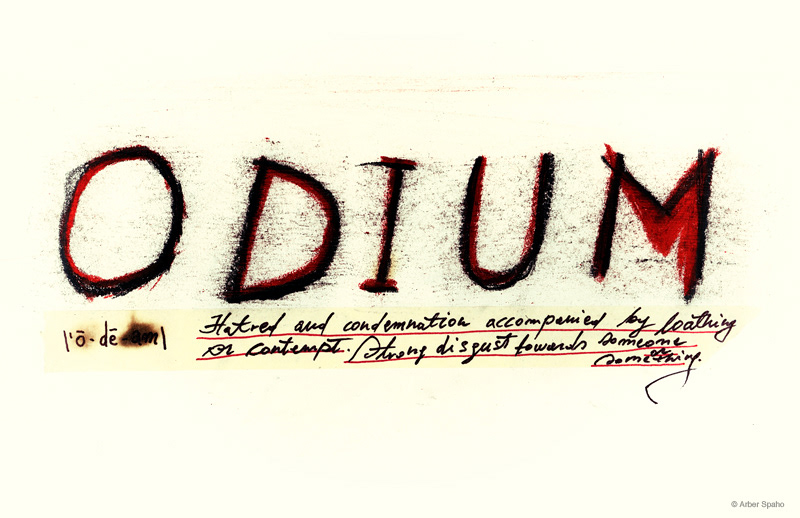 ODIUM
|'ō·dē-əm|
Hatred and condemnation accompanied by loathing
or contempt. Strong disgust towards someone
or
something.
© Arber Spaho